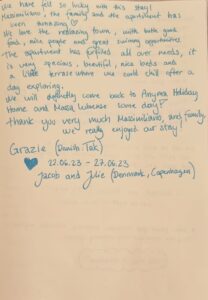 We have felt so lucky with this stay!
Massimiliano, the family and the apartment has
been amazing ♡
We love the relaxing town, with both good
food, nice people and great swimming opportunities.
The apartment has fulfilled all over needs, it
is very spacious, beautiful, nice beds and
a little terrace where we could chill after a
day exploring.
We will definetly come back to Anyma Holiday
Home and Massa Lubrense some day!
Thank you very much Massimiliano, and Family,
we really enjoyed our stay!
Grazie (Danish Tak)
22.06.23 - 27.06.23
Jacob and Julie (Denmark, Copenhagen)